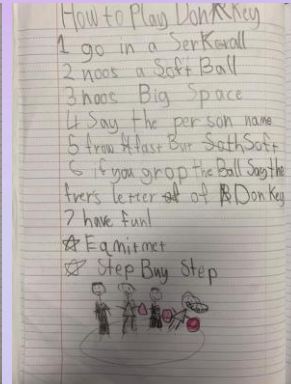 How to Play DonKKey
1 go in a SerKerall
2 noos a Soft Ball
3 noos Big Space
4 Say the person name
5 trow it fast But SothSoft
6 if you grop the Ball Say the
frers letter of DonKey
7 have fun!
☆ Eqnitmet
☆ Step Buy Step